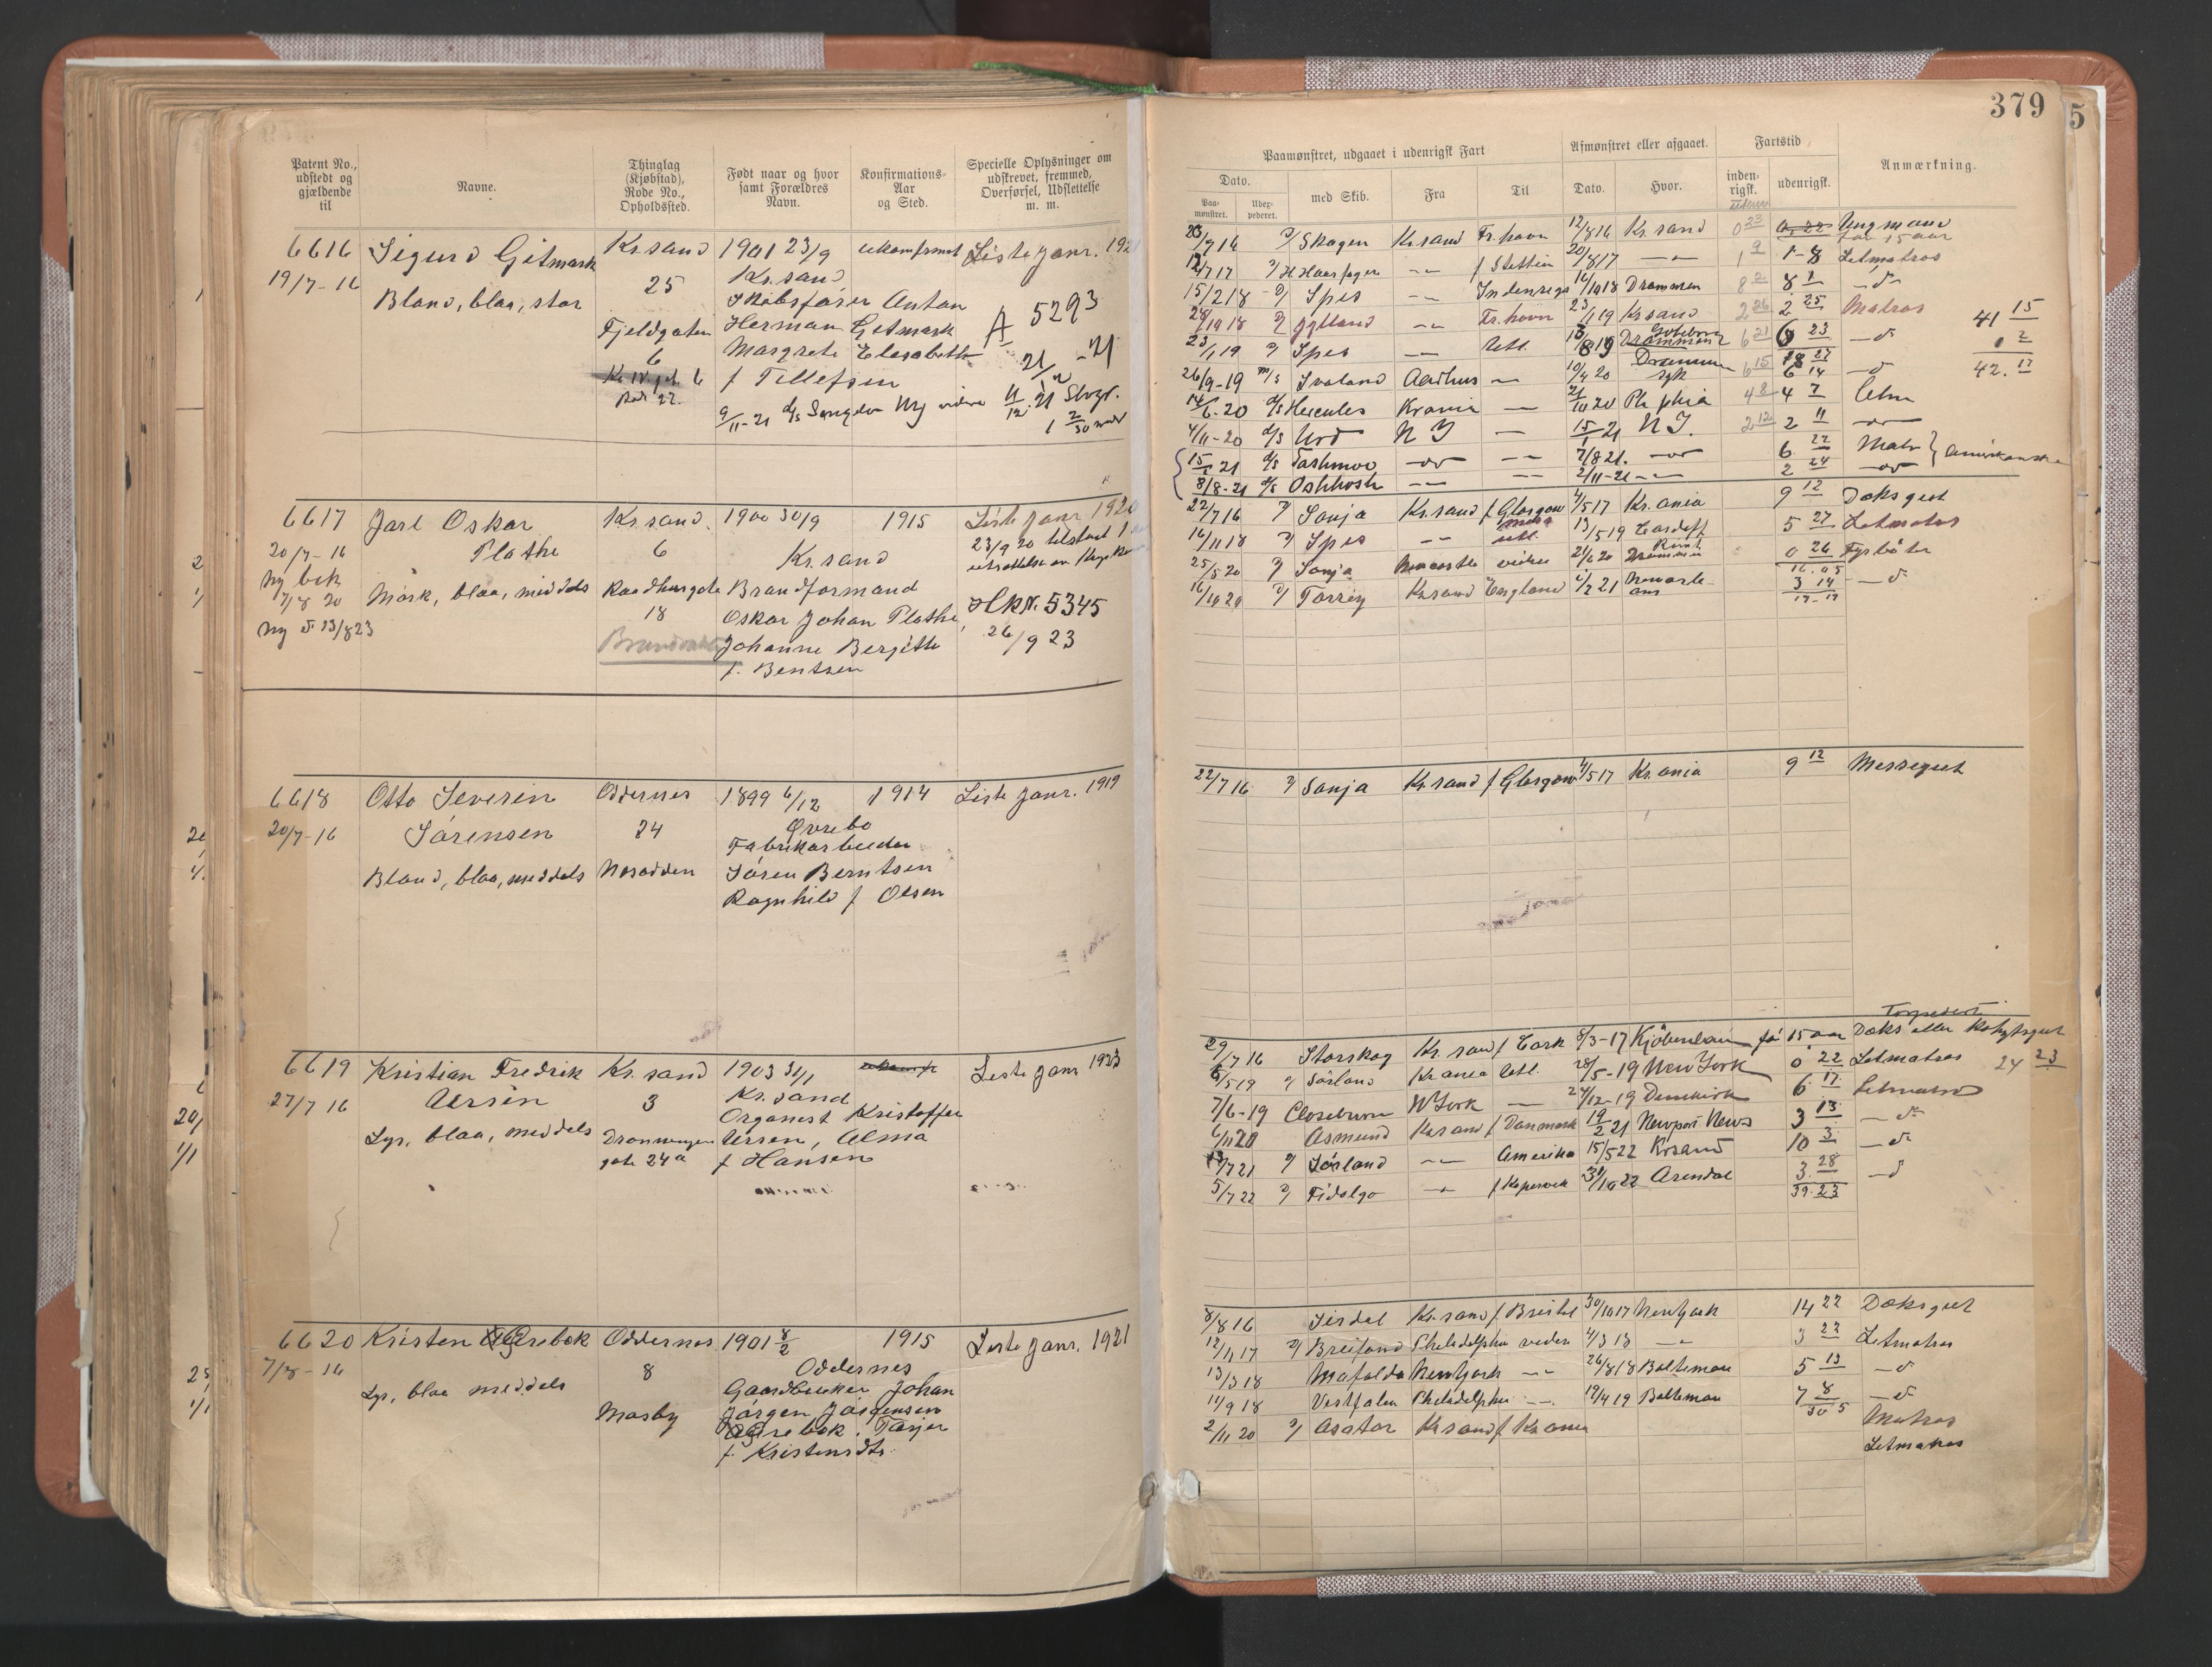 379
5
Patent No., udstedt og gjældende til
Navne.
Thinglag (Kjøbstad), Rode No., Opholdssted.
Født naar og hvor samt Forældres Navn.
Konfirmations-Aar og Sted.
Specielle Oplysninger om udskrevet, fremmed, Overførsel, Udslettelse m. m.
6616 Sigurd Gitmark Kr.sand 1901 23/9 ukonfirmt Liste Janr. 192
19/7-16 25 Kr.sand
Blond, blaa, stor Skibsfører Anton
Fjeldgaten Herman Gitmark A 5293
6 Margrete Elisabeth 21/12-21
f Tellefsen
9/11-21 d/s Songdov NY videre
6617 Jarl Oskar Kr.sand. 1900 30/9 1915 Liste Janr 1920
20/7-16 Plathe 6 Kr.sand 23/9 20 tilstaat
Ny bok
7/8 20 Mørk, blaa, middels Raadhusgate Brandformand
Ny d. 13/8 23 18 Oskar Johan Plathe, Hk Nr. 5345
Johanne Bergitte 26/9 23
f. Bentsen
6618 Otto Severin Oddernes 1899 6/12 1914 Liste Janr. 1919
20/7-16 Sørensen 24 Øvrebo
Fabrikarbeider
Blond, blaa, middels Mosodden Søren Berntsen
Ragnhild f Olsen
6619 Kristian Fredrik Kr. sand 1903 31/1 Liste Janr 1923
27/7 16 Aersen 3 Kr. sand
Organist Kristoffer
Lys, blaa, middels Dronningens Aersen, Alma
gate 24a f Hansen
6620 Kristen Aagrebok Oddernes 1901 8/2 1915 Liste Janr. 1921
7/8-16 8 Oddernes
Lys, blaa middels Gaardbruker Johan
Mosby Jørgen Jørgensen
Aagrebok, Tarjer
f. Kristensdtr.
Paamønstret, udgaaet i udenrigsk Fart
Afmønstret eller afgaaet.
Fartstid
Anmærkning.
Dato. med Skib. Fra Til Dato. Hvor. inden-rigsk. udenrigsk.
Paa-mønstret. Udex-pederet.
23/7 16 Skagen Kr.sand Fr.havn 12/8 16 Kr.sand 0 23 Ungmand
for 15 aar
12/4 17 H Haarfagre — f Stettin 20/8 17 — 1 9 1-8 Letmatros
15/2 18 Spes — Indenrigs 16/10 18 Drammen 8 2 8 1 —d—
28/10 18 Jylland — Fr.havn 23/1 19 Kr.sand 2 26 2 25 Matros 41 15
23/1 19 Spes — Utl. Göteborg 6 21 6 23 —d 0 2
26/9-19 m/s Ivaland Aarhus — 10/4 20 Drammen syk 6 15 6 14 —d 42. 17
14/6-20 d/s Hercules Krania — 21/10 20 Ph.phia 4 8 4 7 Letm
4/11-20 d/s Urd N Y — 15/1 21 N Y. 2 12 2 11
15/1 21 d/s Tashmoo — — 7/8 21. 6. 22 Matr } amerikanske
8/8-21 d/s Oshkosh — — 2/11-21 — 2 24
22/7 16 Sonja Kr.sand f Glasgow 4/5 17 Kr.ania 9 12 Dæksgut
16/11 18 Spes — utl. 13/5 19 Cardiff 5 27 Letmatros
25/5 20 Sonja Newcastle videre 21/6 20 Drammen 0 26 Fyrbøter
16.05
16/10 20 Torrey Kr.sand England 2 21 Newcastle 3 14 —d
19-19
22/7 16 Sonja Kr.sand f Glasgow 4/5 17 Kr.ania 9 12 Messegut
Torpedert
29/7 16 Storskog Kr.sand f Cork 8/3-17 Kjöbenhavn før 15 aar Dæks eller Kahytsgut
6/5 19 Sørland Krania Utl. 28/5-19 New York 0 22 Letmatros 24 23
7/6-19 Closeburn N York — 24/12-19 Dunkirk 6 17 Letmatros
6/11 20 Asmund Kr.sand f Danmark 19/2 21 Newport News 3 13 —d
13/7 21 Sørland — Amerika 15/5 22 Krsand 10 3 —d
5/7 22 Fidalgo — f Kopervik 31/10 22 Arendal 3. 28 —d
39.23
8/8 16 Sirdal Kr.sand f Bristol 30/10 17 New York 14 22 Dæksgut
12/11 17 Breifond Philadelphia videre 4/3 18 — 3 22 Letmatros
13/3 18 Mafalda New York — 26/8 18 Baltimore 5 13 —d
11/9 18 Vestfalen Philadelphia — 19/4 19 Baltimore 7 8 —d
30 5
2/11 20 Asator Kr.sand f Kr.ania Matros
Letmatros